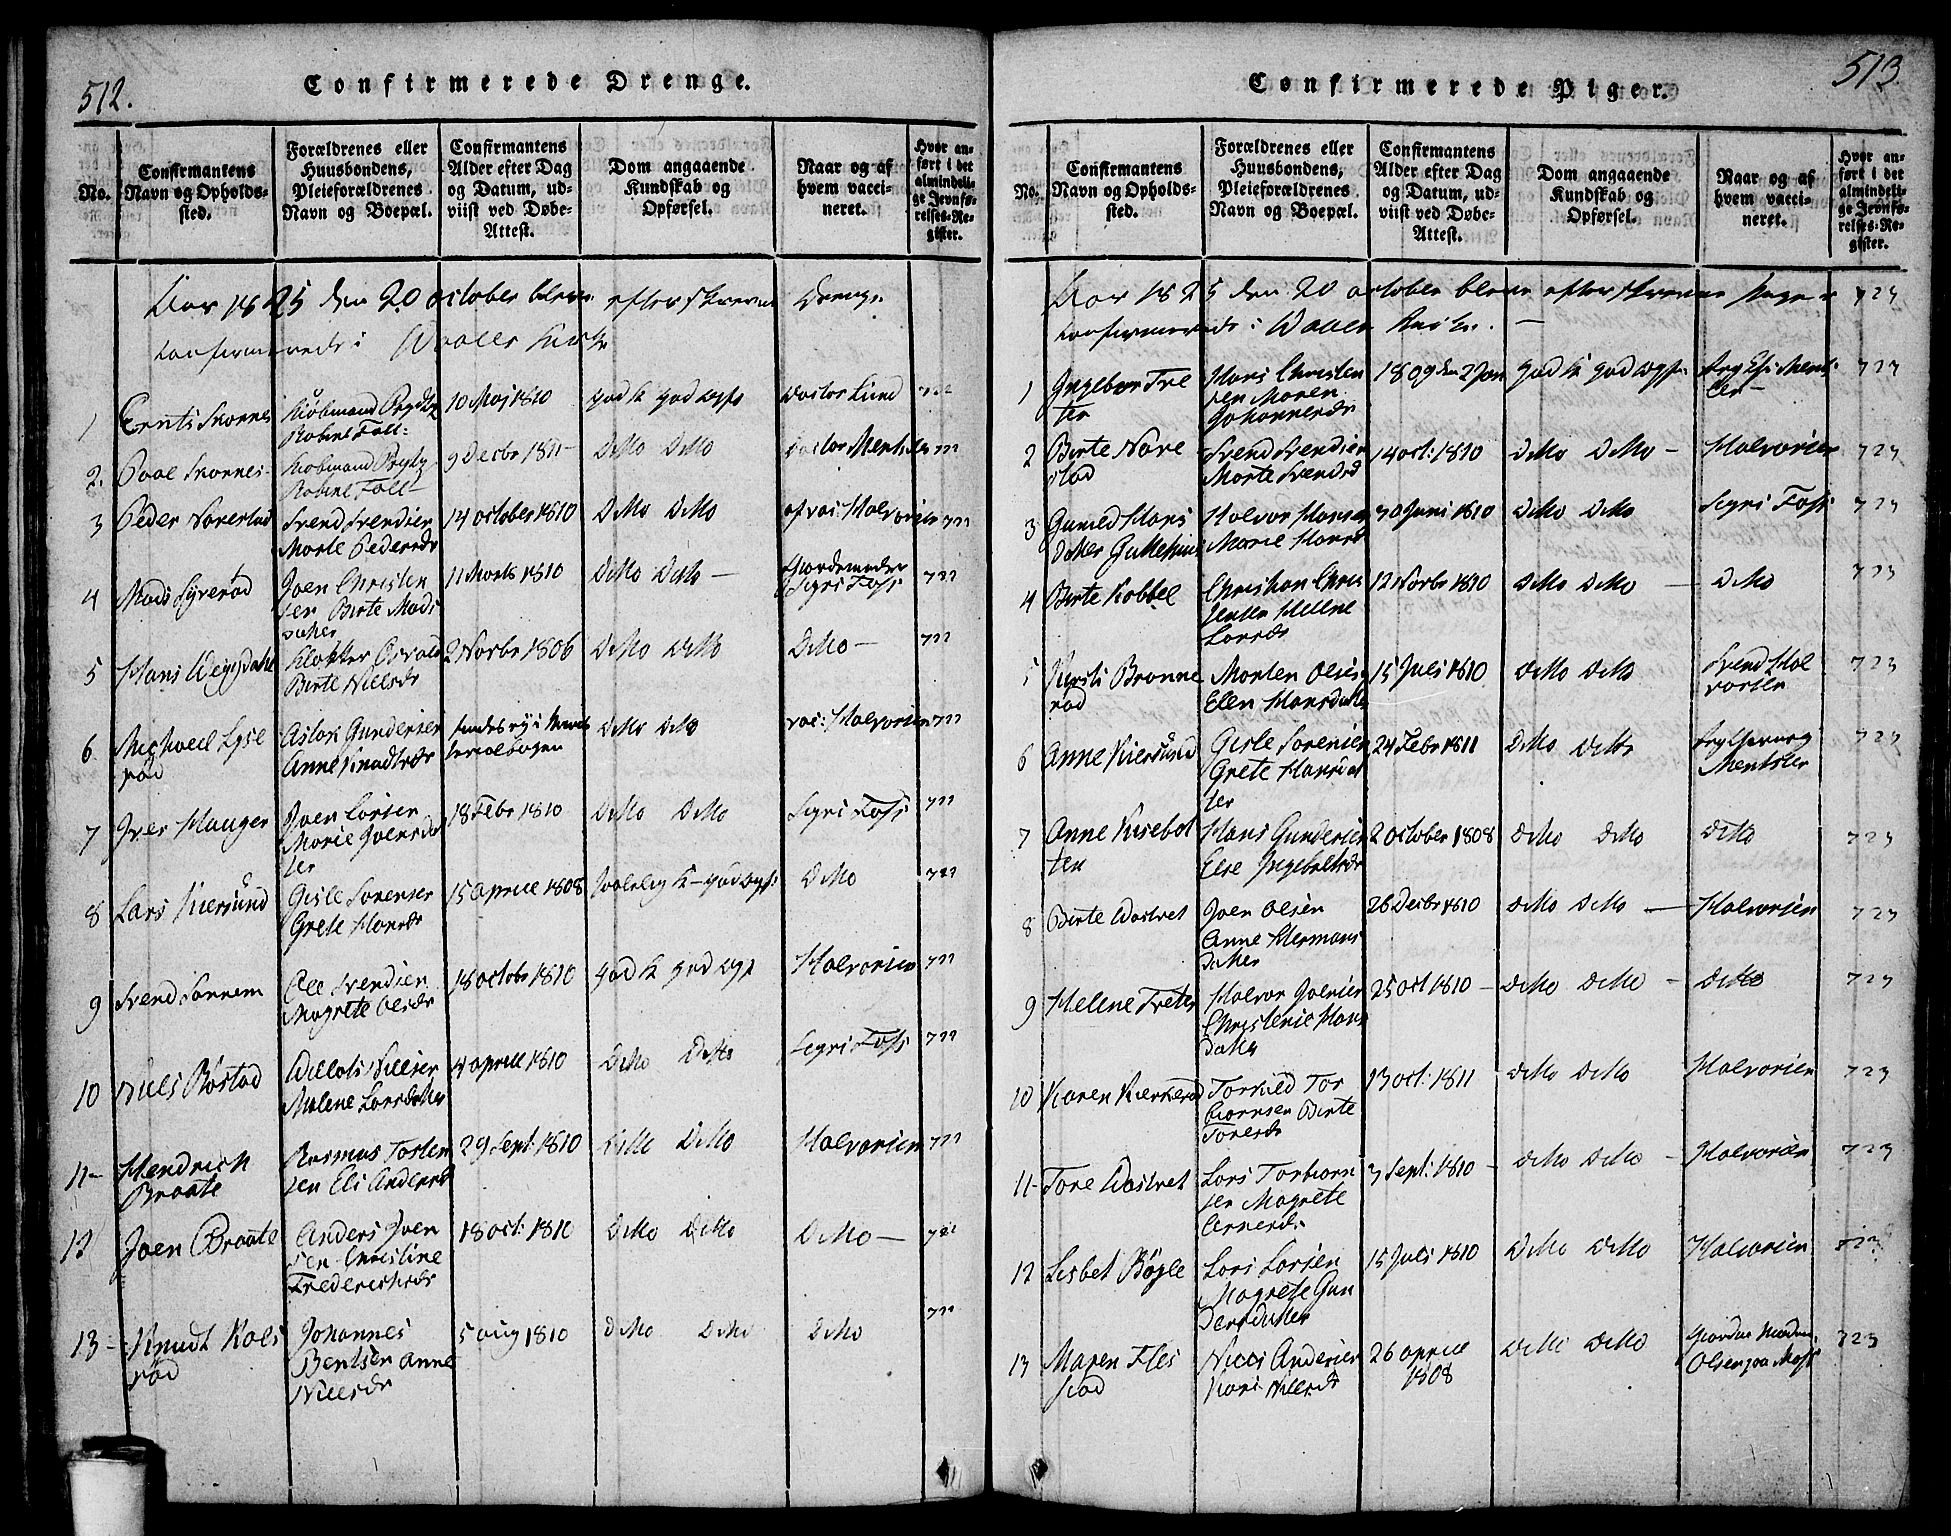 512.
Confirmerede Drenge.
No.
Confirmantens
Navn og Opholds-
sted.
Forældrenes eller
Huusbondens,
Pleieforældrenes
Navn og Boepæl.
Confirmantens
Alder efter Dag
og Datum, ud-
viist ved Døbe-
Attest.
Dom angaaende
Kundskab og
Opførsel.
Naar og af
hvem vacci-
neret.
Hvor an-
ført i det
almindeli-
ge Jevnfø-
relses-Re-
gister.
Aar 1825 den 20 october bleve efterskrevne Drenge
confirmerede i Waaler Kirke
1
Skornes
Kiøbmand
10 Maj 1810
god K god
Lund
722
2.
Poul Skornes
Kiøbmand
9 Decbr 1811
DiMo DiMo
722
3
Peder Norestad
Svend Svendsen
Morte Pedersdr
14 october 1810
DiMo DiMo
Halvorsen
722
4
Mads Syverød
Joen Christen
sen Birte Mads
datter
11 Marts 1810
DiMo DiMo —
Jordemoder
Segri Foss
722
5
Hans
Klokker
Birte Nielsdr
2 Novbr 1806
DiMo DiMo
DiMo —
722
6
Lyse
rød
Aslak Gundersen
Anne Knudsdr
findes ej i Ministe
rialbogen
DiMo DiMo
vac: Halvorsen
722
7
Iver Hauger
Joen Larsen
Marie Joensda
ter
18 Febr 1810
DiMo DiMo
Segri Foss
722
8
Lars Kiersund
Gisle Sorensen
Grete Hansdr
15 aprill 1808
DiMo
722
9
Svend Sonnem
Ole Svendsen
Magrete Olsdr
18 octobr 1810
god K god
Halvorsen
722
10
Niels Røstad
Nielsen
Malene Larsdatter
4 aprill 1810
DiMo DiMo
Segri Foss
722
11-
Hendrich
Braate
Rasmus Tosten
sen Eli Andersd
29 Sept 1810
DiMo DiMo
Halvorsen
722
12
Joen Braate
Anders Joen
sen Christine
Frederichsdr
18 oct: 1810
DiMo DiMo
DiMo —
722
13-
Knudt Roes
rød
Johannes
Bentsen Anne
Nielsdr
5 aug 1810
DiMo DiMo
DiMo
722
513
Confirmerede Piger.
No.
Confirmantens
Navn og Opholds-
sted.
Forældrenes eller
Huusbondens,
Pleieforældrenes
Navn og Boepæl.
Confirmantens
Alder efter Dag
og Datum, ud-
viist ved Døbe-
Attest.
Dom angaaende
Kundskab og
Opførsel.
Naar og af
hvem vacci-
neret.
Hvor an-
ført i det
almindeli-
ge Jevnfø-
relses-Re-
gister.
Aar 1825 den 20 october bleve efterskrevne Piger
723
confirmerede i Waaler Kirke. —
1
Ingebor Tve
ter
Hans Christen
sen Maren
Johannesdr
1809 den 2 Jan
god K god
723
2
Birte Nore
stad
Svend Svendsen
Morte Svendsd
14 oct: 1810
DiMo DiMo —
Halvorsen
723
3
Gunild Hans
datter
Halvor Hansen
Marie Hansd
30 Juni 1810
DiMo DiMo
Segri Foss
723
4
Birte Kobbel
Christian Chris
tensen Helene
Larsdr
12 Novbr 1810
DiMo DiMo —
DiMo
723
5
Kirsti Bronne
rød
Morten Olsen
Elen Hansdatter
15 Juli 1810
DiMo DiMo
Svend Hal
vorsen
723
6
Anne Kiersund
Gisle Sorensen
Grete Hansdat
ter
24 Febr 1811
DiMo DiMo
723
7
Anne Kisebot
ten
Hans Gundersen
Else Ingebretsdr
2 october 1808
DiMo DiMo
DiMo
723
8
Birte Wastvet
Joen Olsen
Anne Hermans
datter
26 Decbr 1810
DiMo DiMo —
Halvorsen
723
9
Helene Tveter
Halvor Joensen
Christense Hans
datter
25 oct 1810 —
DiMo DiMo —
DiMo
723
10
Karen Kierkerød
Torkild Tor
biornsen Birte
Toresdr
13 oct: 1811
DiMo DiMo
Halvorsen
723
11-
Tore Wastvet
Lars Torbiorn
sen Magrete
Arnesdr
3 Sept: 1810 —
DiMo DiMo —
Halvorsen
723
12
Lisbet Bøgle
Lars Larsen
Magrete Gun
dersdatter
15 Juli 1810
DiMo DiMo
Halvorsen
723
13
Maren Fles
stad
Niels Andersen
Kari Nielsdr
26 aprill
1808
DiMo DiMo
Olsen paa Moss
723